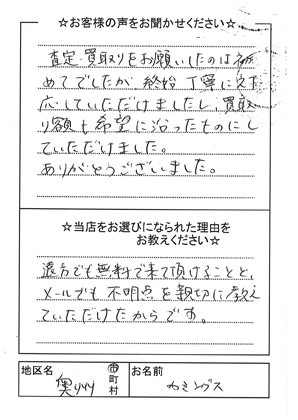 ☆お客様の声をお聞かせください☆
査定・買取りをお願いしたのは初
めてでしたが、終始 丁寧に対
応していただけましたし、買取
り額も希望に沿ったものにし
ていただけました。
ありがとうございました。
☆当店をお選びになられた理由を
お教えください☆
遠方でも無料で来て頂けることと、
メールでも不明点を親切に教え
ていただけたからです。
地区名 奥州 市町村 お名前